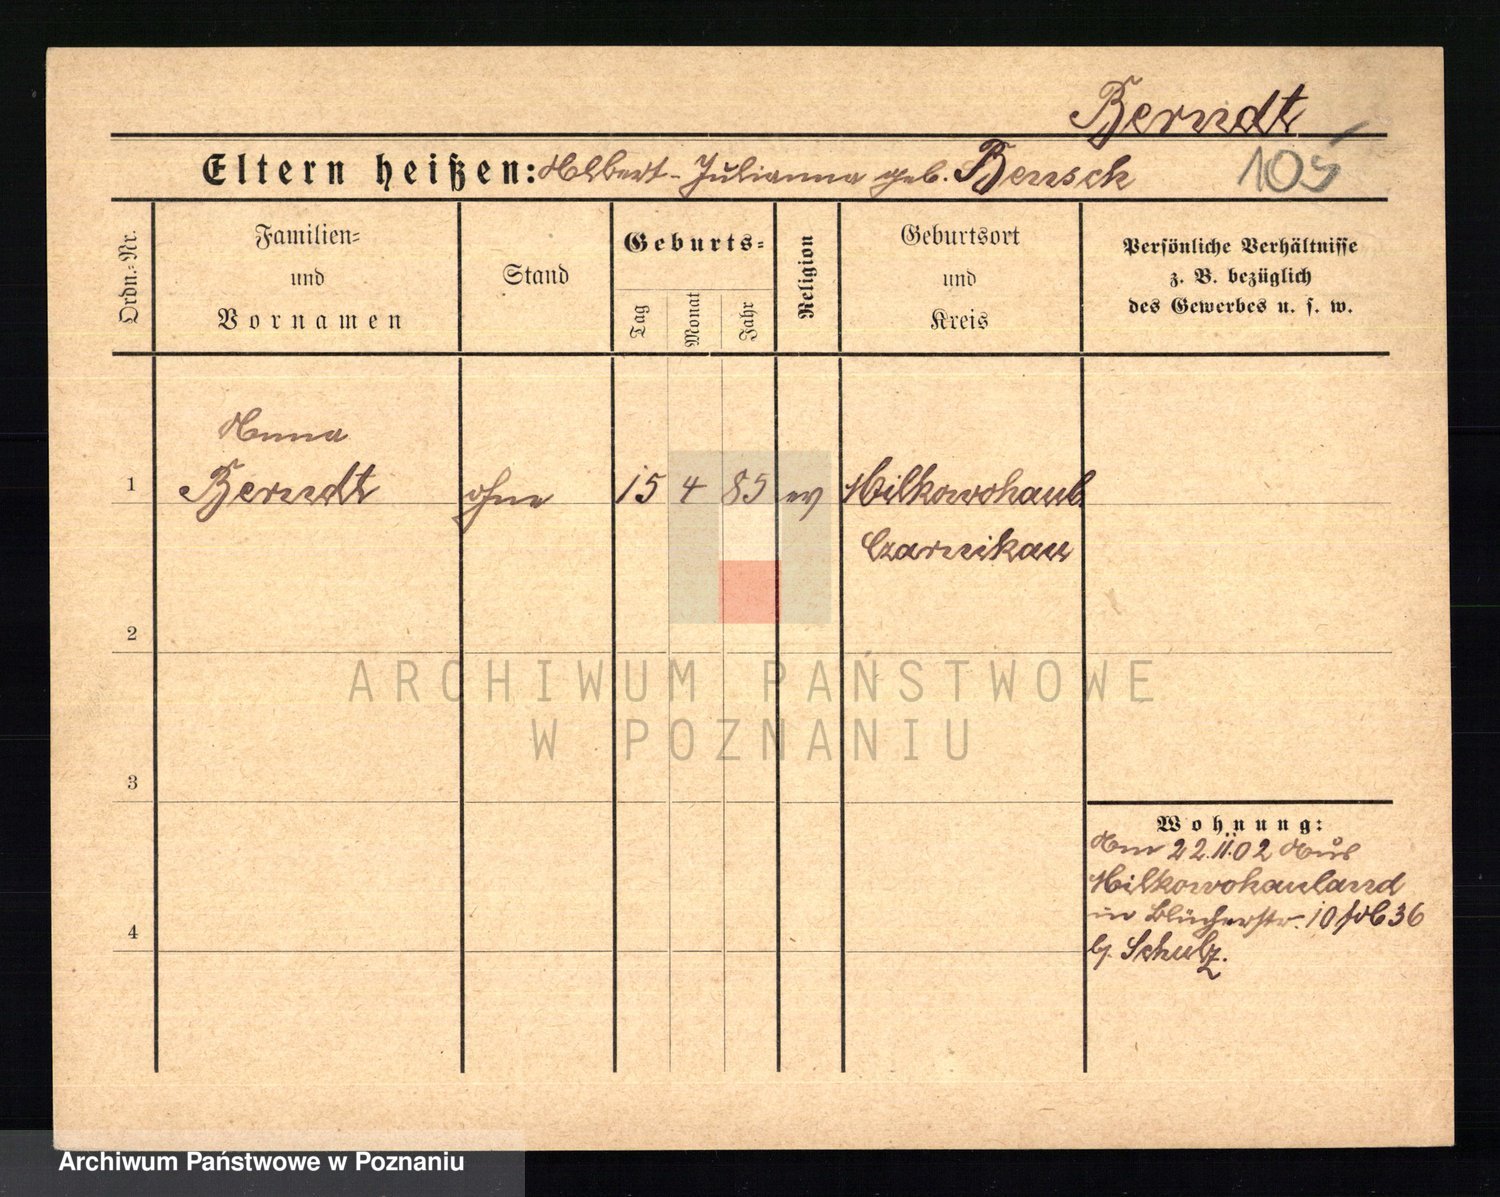 Berndt
Eltern heißen: Albert - Julianna geb. Bensch 105
Ordn.-Nr.
Familien-
und
Vornamen
Stand
Geburts-
Tag
Monat
Jahr
Religion
Geburtsort
und
Kreis
Persönliche Verhältnisse
z. B. bezüglich
des Gewerbes u. s. w.
Anna
1 Berndt ohne 15 4 85 ev Milkowohaul.
Czarnikau
2
ARCHIWUM PAŃSTWOWE
W POZNANIU
3
Wohnung:
Am 22.11.02 Aus
Milkowohauland
in Blücherstr. 10
4
b. Schulz.
Archiwum Państwowe w Poznaniu